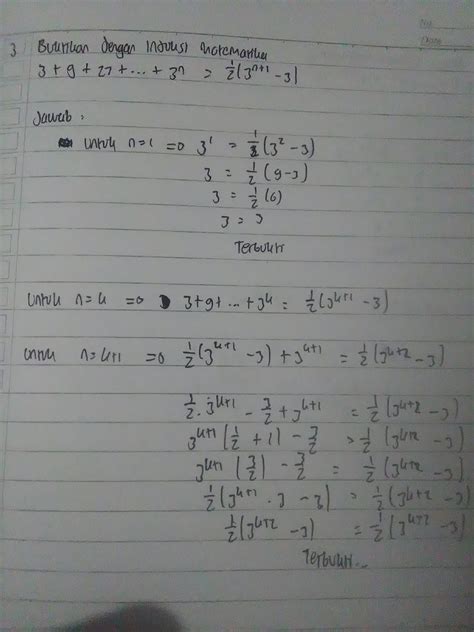 No.
Date
3 Buktikan dengan Induksi Matematika
3 + 9 + 27 + ... + 3ⁿ = ½(3ⁿ⁺¹ - 3)
Jawab :
untuk n=1 => 3¹ = ½(3² - 3)
3 = ½(9-3)
3 = ½(6)
3 = 3
Terbukti
untuk n=k => 3+9+...+3ᵏ = ½(3ᵏ⁺¹ - 3)
untuk n=k+1 => ½(3ᵏ⁺¹ - 3) + 3ᵏ⁺¹ = ½(3ᵏ⁺² - 3)
½ . 3ᵏ⁺¹ - 3/2 + 3ᵏ⁺¹ = ½(3ᵏ⁺² - 3)
3ᵏ⁺¹(½ + 1) - 3/2 = ½(3ᵏ⁺² - 3)
3ᵏ⁺¹(3/2) - 3/2 = ½(3ᵏ⁺² - 3)
½(3ᵏ⁺¹ . 3 - 3) = ½(3ᵏ⁺² - 3)
½(3ᵏ⁺² - 3) = ½(3ᵏ⁺² - 3)
Terbukti...